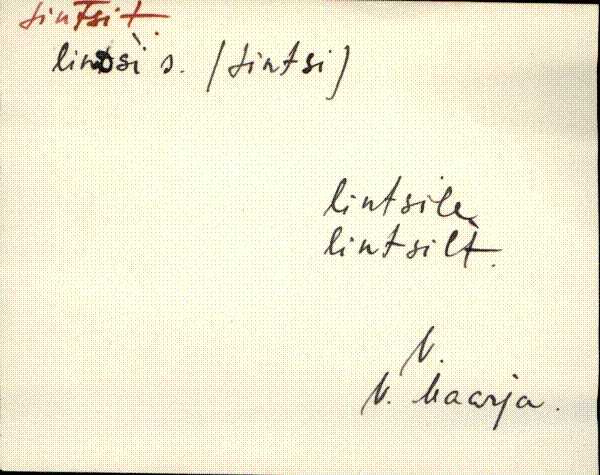 lintsit
lintsi s. (lintsi)
lintsile
lintsilt
V.
V. Maarja.